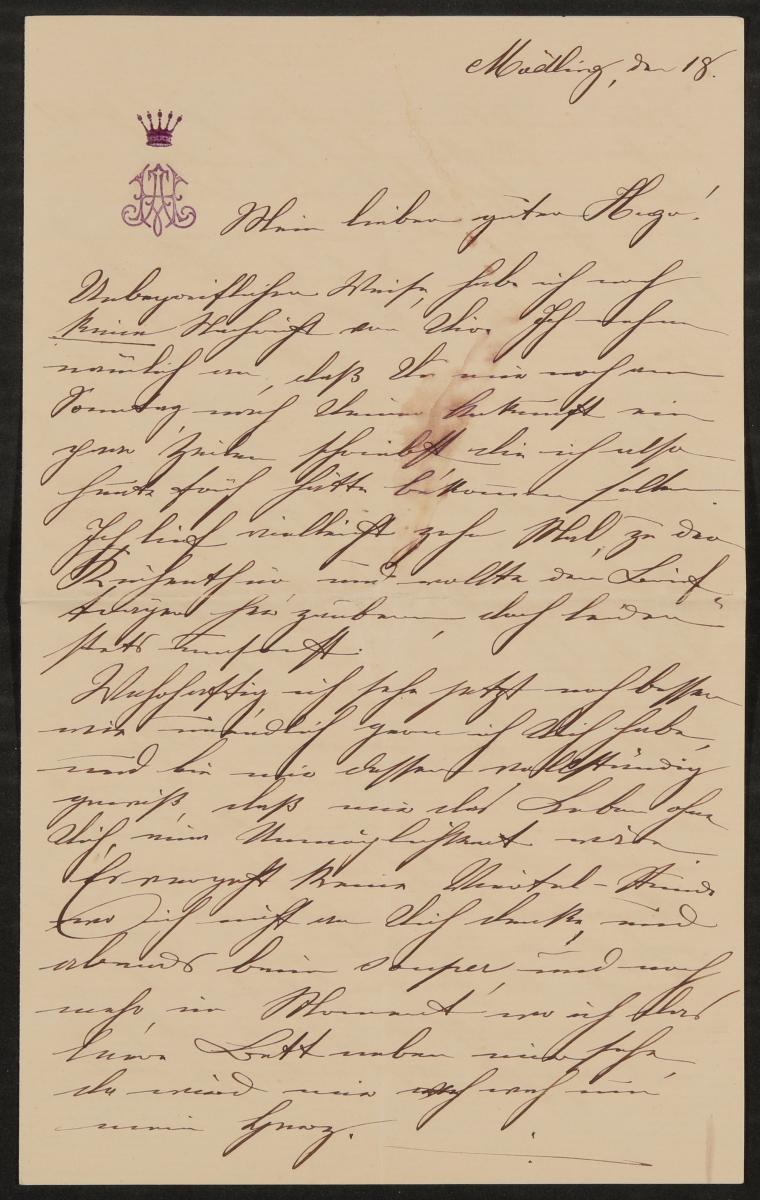 Mödling, den 18.
Mein lieber guter Hugo!
Unbegreiflicher Weise, habe ich noch
keine Nachricht von Dir. Ich nehme
nämlich an, daß Du mir noch am
Sonntag nach Deiner Ankunft ein
paar Zeilen schriebst die ich also
heute früh hätte bekommen sollen.
Ich lief vielleicht zehn Mal, zu der
Küchenthür und wollte den Brief-
träger herzaubern, doch leider
stets umsonst.
Wahrhaftig ich sehe jetzt noch besser
wie unendlich gern ich Dich habe,
und bin mir dessen vollständig
gewiß, daß mir das Leben ohne
Dich, eine Unmöglichkeit wäre.
Es vergeht keine Viertel-Stunde
wo ich nicht an Dich denke, und
abends beim souper, und noch
mehr im Moment wo ich das
leere Bett neben mir sehe,
da wird mir weh um
mein Herz.